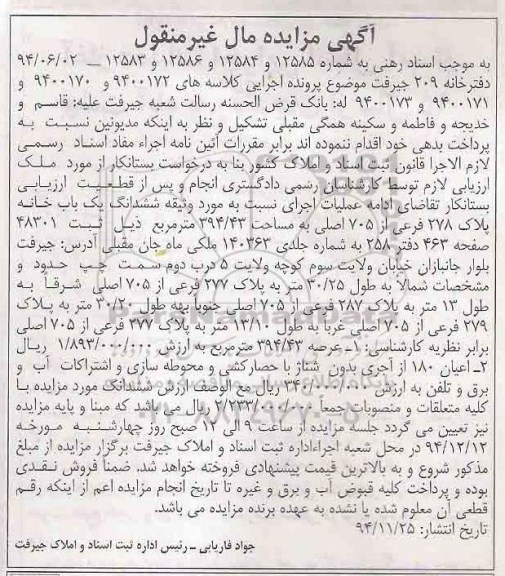 آگهی مزایده مال غیرمنقول
به موجب اسناد رهنی به شماره ۱۲۵۸۵ و ۱۲۵۸۴ و ۱۲۵۸۶ و ۱۲۵۸۳ ــ ۹۴/۰۶/۰۲
دفترخانه ۲۰۹ جیرفت موضوع پرونده اجرایی کلاسه های ۹۴۰۰۱۷۲ و ۹۴۰۰۱۷۰ و
۹۴۰۰۱۷۱ و ۹۴۰۰۱۷۳ له: بانک قرض الحسنه رسالت شعبه جیرفت علیه: قاسم و
خدیجه و فاطمه و سکینه همگی مقبلی تشکیل و نظر به اینکه مدیونین نسبت به
پرداخت بدهی خود اقدام ننموده اند برابر مقررات آئین نامه اجراء مفاد اسناد رسمی
لازم الاجرا قانون ثبت اسناد و املاک کشور بنا به درخواست بستانکار از مورد ملک
ارزیابی لازم توسط کارشناسان رسمی دادگستری انجام و پس از قطعیت ارزیابی
بستانکار تقاضای ادامه عملیات اجرای نسبت به مورد وثیقه ششدانگ یک باب خانه
پلاک ۲۷۸ فرعی از ۷۰۵ اصلی به مساحت ۳۹۴/۴۳ مترمربع ذیل ثبت ۴۸۳۰۱
صفحه ۴۶۳ دفتر ۲۵۸ به شماره جلدی ۱۴۰۳۶۳ ملکی ماه جان مقبلی آدرس: جیرفت
بلوار جانبازان خیابان ولایت سوم کوچه ولایت ۵ درب دوم سمت چپ حدود و
مشخصات شمالا به طول ۳۰/۲۵ متر به پلاک ۲۷۷ فرعی از ۷۰۵ اصلی شرقا به
طول ۱۳ متر به پلاک ۲۸۷ فرعی از ۷۰۵ اصلی جنوبا به طول ۳۰/۲۰ متر به پلاک
۲۷۹ فرعی از ۷۰۵ اصلی غربا به طول ۱۳/۱۰ متر به پلاک ۳۷۷ فرعی از ۷۰۵ اصلی
برابر نظریه کارشناسی: ۱ـ عرصه ۳۹۴/۴۳ مترمربع به ارزش ۱/۸۹۳/۰۰۰/۰۰۰ ریال
۲ـ اعیان ۱۸۰ از آجری بدون شناژ با حصارکشی و محوطه سازی و اشتراکات آب و
برق و تلفن به ارزش ۳۴۰/۰۰۰/۰۰۰ ریال مع الوصف ارزش ششدانگ مورد مزایده با
کلیه متعلقات و منصوبات جمعاً ۲/۲۳۳/۰۰۰/۰۰۰ ریال می باشد که مبنا و پایه مزایده
نیز تعیین می گردد جلسه مزایده از ساعت ۹ الی ۱۲ صبح روز چهارشنبه مورخه
۹۴/۱۲/۱۲ در محل شعبه اجراءاداره ثبت اسناد و املاک جیرفت برگزار مزایده از مبلغ
مذکور شروع و به بالاترین قیمت پیشنهادی فروخته خواهد شد، ضمناً فروش نقدی
بوده و پرداخت کلیه قبوض آب و برق و غیره تا تاریخ انجام مزایده اعم از اینکه رقم
قطعی آن معلوم شده یا نشده به عهده برنده مزایده می باشد.
تاریخ انتشار: ۹۴/۱۱/۲۵
جواد فاریابی ـ رئیس اداره ثبت اسناد و املاک جیرفت